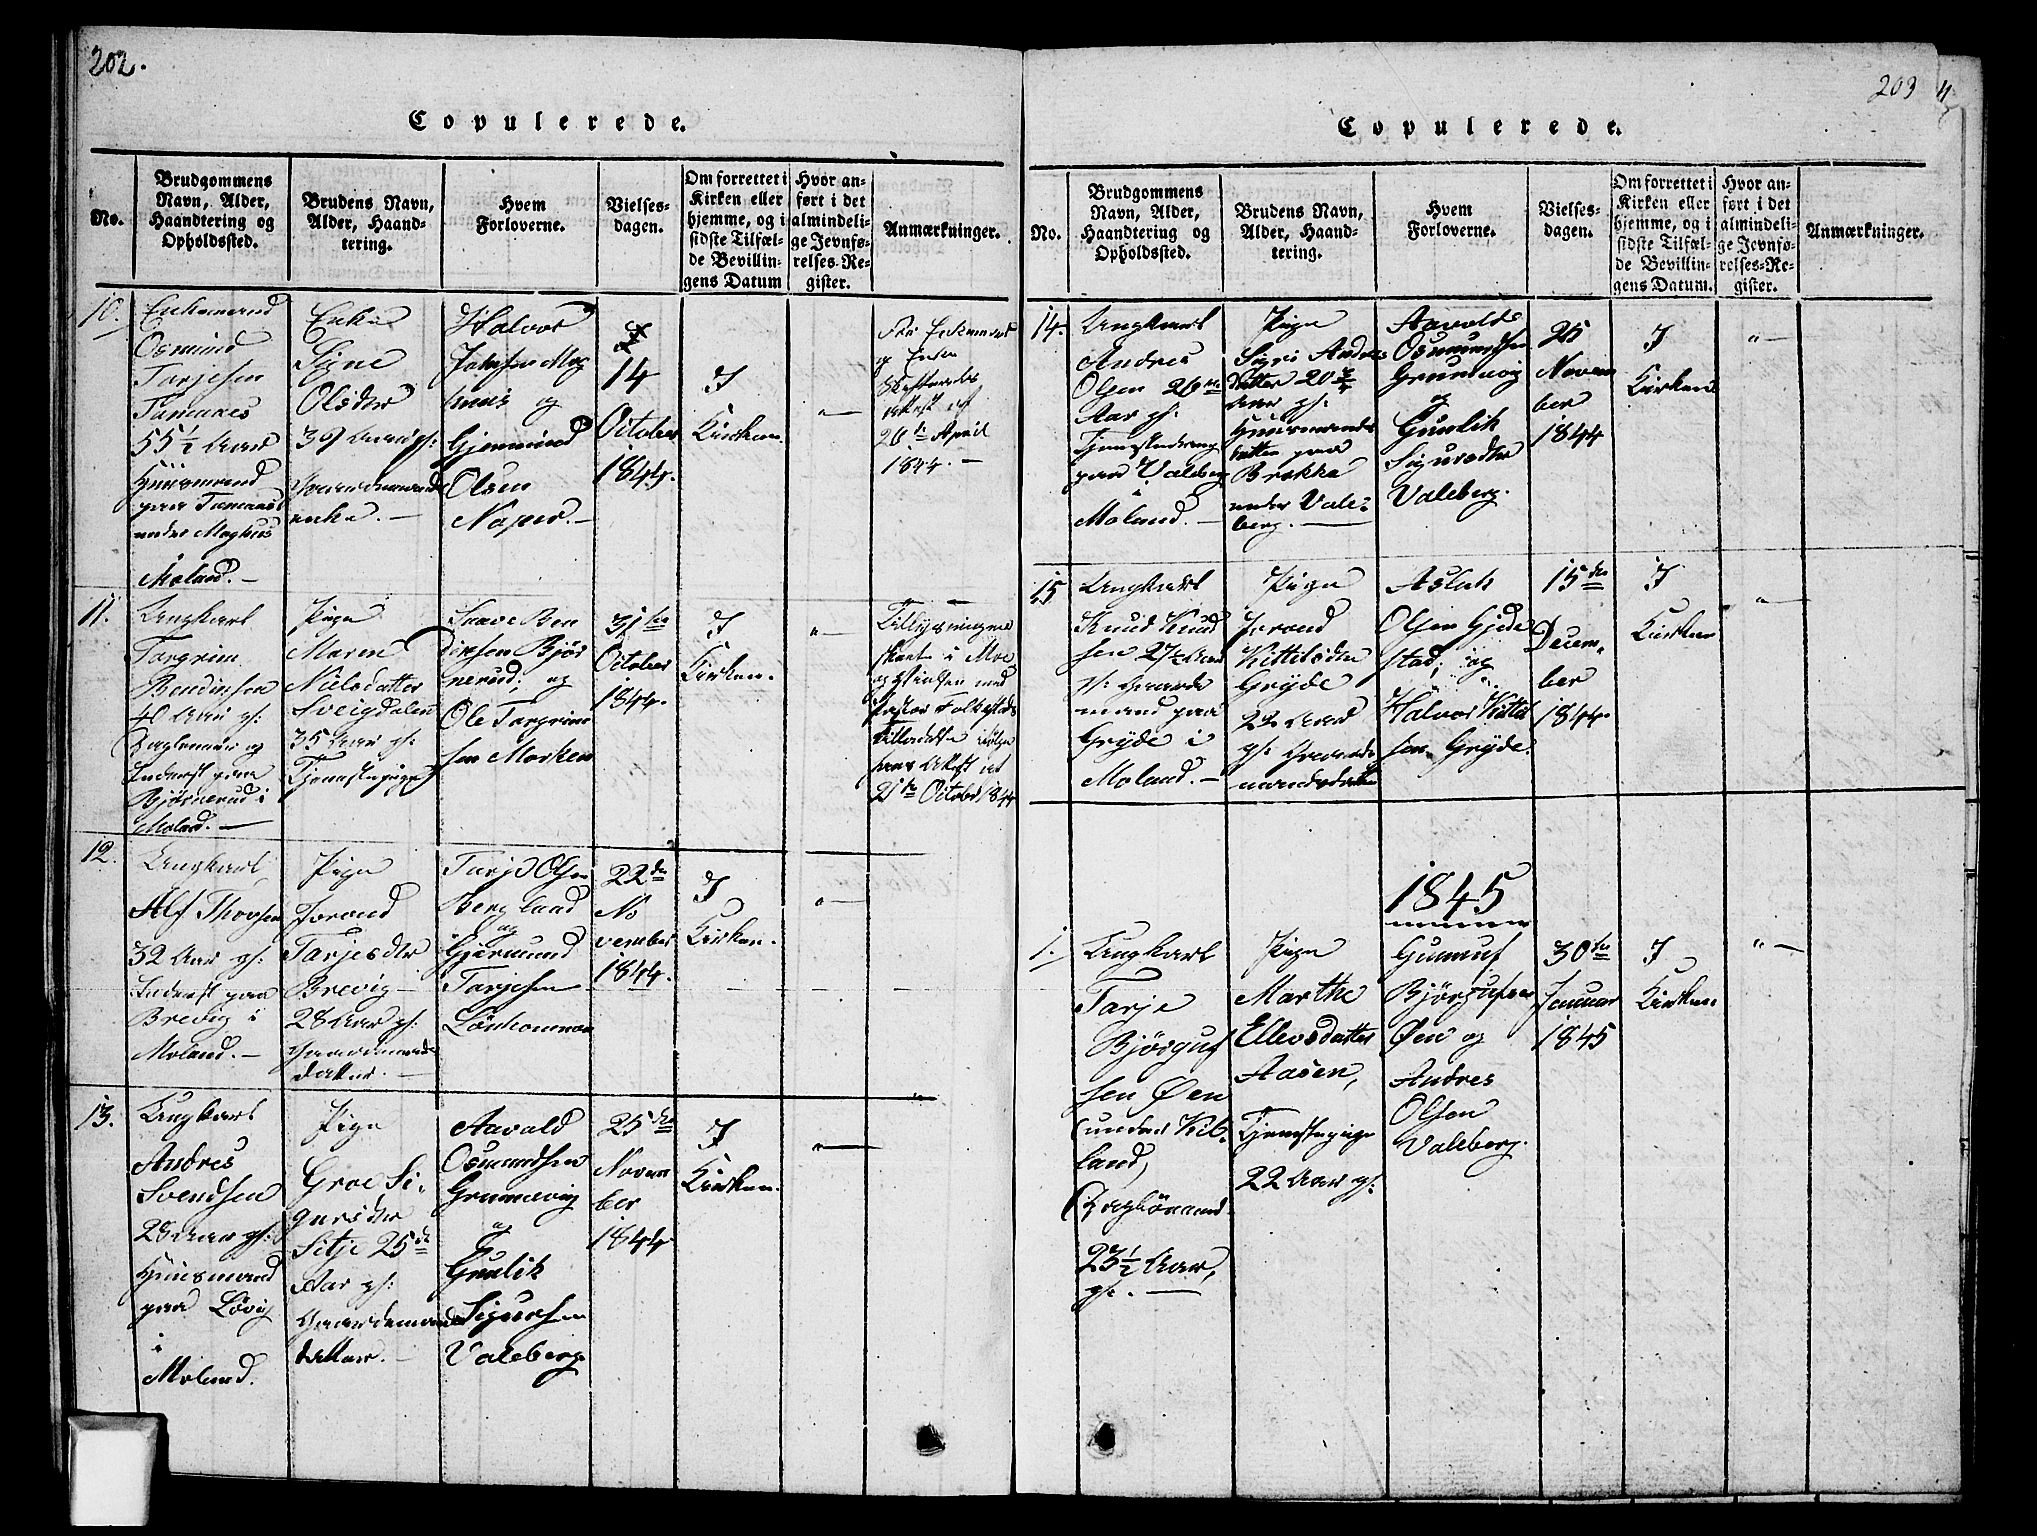 202.
Copulerede.
No.
Brudgommens
Navn, Alder,
Haandtering og
Opholdssted.
Brudens Navn,
Alder, Haand-
tering.
Hvem
Forloverne.
Vielses-
dagen.
Om forrettet i
Kirken eller
hjemme, og i
sidste Tilfæl-
de Bevillin-
gens Datum
Hvor an-
ført i det
almindeli-
ge Jevnfø-
relses-Re-
gister.
Anmærkninger.
10.
Enkemand
Osmund
Tarjesen
55 1/2 Aar
Huusmand
paa
under Moghus
i
Moland. —
Enke
Signe
Olsdtr
39 Aar gl:
Gaardmands
enke. —
Halvor
Johnsen Mog
huus og
Gjermund
Olsen
Naper. —
14
October
1844.
I
Kirken.
" —
og Enken
Skifteretts
attest af
26de April
1844. —
11.
Ungkarl
Torgrim
Bendixsen
40 Aar gl:
og
Inderst paa
Bjørnerud i
Moland. —
Pige
Maren
Nielsdatter
Sveigdalen
35 Aar gl:
Tjenestepige
Bendixsen Bjør
nerud; og
Ole Torgrim
sen Morken
31te
October
1844.
I
Kirken.
" —
Tillysningerne
skeet i Moe
med
Pastor Folkestads
Tilladelse
hans Attest af
21de October 1844
12.
Ungkarl
Alf Thorsen
32 Aar gl:
Inderst paa
Brevig i
Moland. —
Pige
Jorond
Tarjesdtr
Brevig —
28 Aar gl:
Gaardmands
datter. —
Tarje Olsen
Bergland
og
Gjermund
Tarjesen
22de
No
vember
1844.
I
Kirken.
" —
13.
Ungkarl
Andres
Svendsen
28 Aar gl:
Huusmand
paa Løvig
i
Moland.
Pige
Groe Si-
gursdtr
Sitje 25de
Aar gl:
Gaardemands
datter. —
Aavold
Osmundsen
Grunnevig
og
Gunlik
Sigursen
Valeberg
25de
Novem
ber
1844
I
Kirken.
" —
203
Copulerede.
No.
Brudgommens
Navn, Alder,
Haandtering og
Opholdssted.
Brudens Navn,
Alder, Haand-
tering.
Hvem
Forloverne.
Vielses-
dagen.
Om forrettet i
Kirken eller
hjemme, og i
sidste Tilfæl-
de Bevillin-
gens Datum.
Hvor an-
ført i det
almindeli-
ge Jevnfø-
relses-Re-
gister.
Anmærkninger.
14.
Ungkarl
Andres
Olsen 26
Aar gl:
Tjenestedreng
paa Valeberg
i
Moland. —
Pige
Sigri Andres
datter 20
Aar gl:
Huusmands
datter paa
Brække
under Vale-
berg. —
Aavold
Osmundsen
Grunnevig
og
Gunlik
Valeberg.
25
Novem
ber
1844
I
Kirken
" —
15
Ungkarl
Knud Knud
sen 27 Aar
gl: Gaarde
mand paa
Gryde i
Moland. —
Pige
Jorond
Kittilsdtr
Gryde
22 Aar
gl: Gaarde
mandsdatter
Aslak
Olsen Gjede
stad; og
Halvor Kittil
sen Gryde.
15de
Decem-
ber
1844.
I
Kirken
" —
1845
1.
Ungkarl
Tarje
Bjørguf
sen Øen
(under Kit-
land)
23 1/2 Aar,
gl. —
Pige
Marthe
Ellevsdatter
Aasen,
Tjenestepige
22 Aar gl:
Gunnuf
Bjørgufsen
Øen og
Andres
Olsen
Valeberg.
30te
Januar
1845
I
Kirken
" —